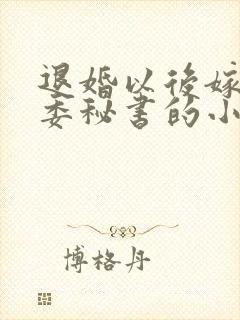 退婚以后嫁
委秘书的小
博格丹